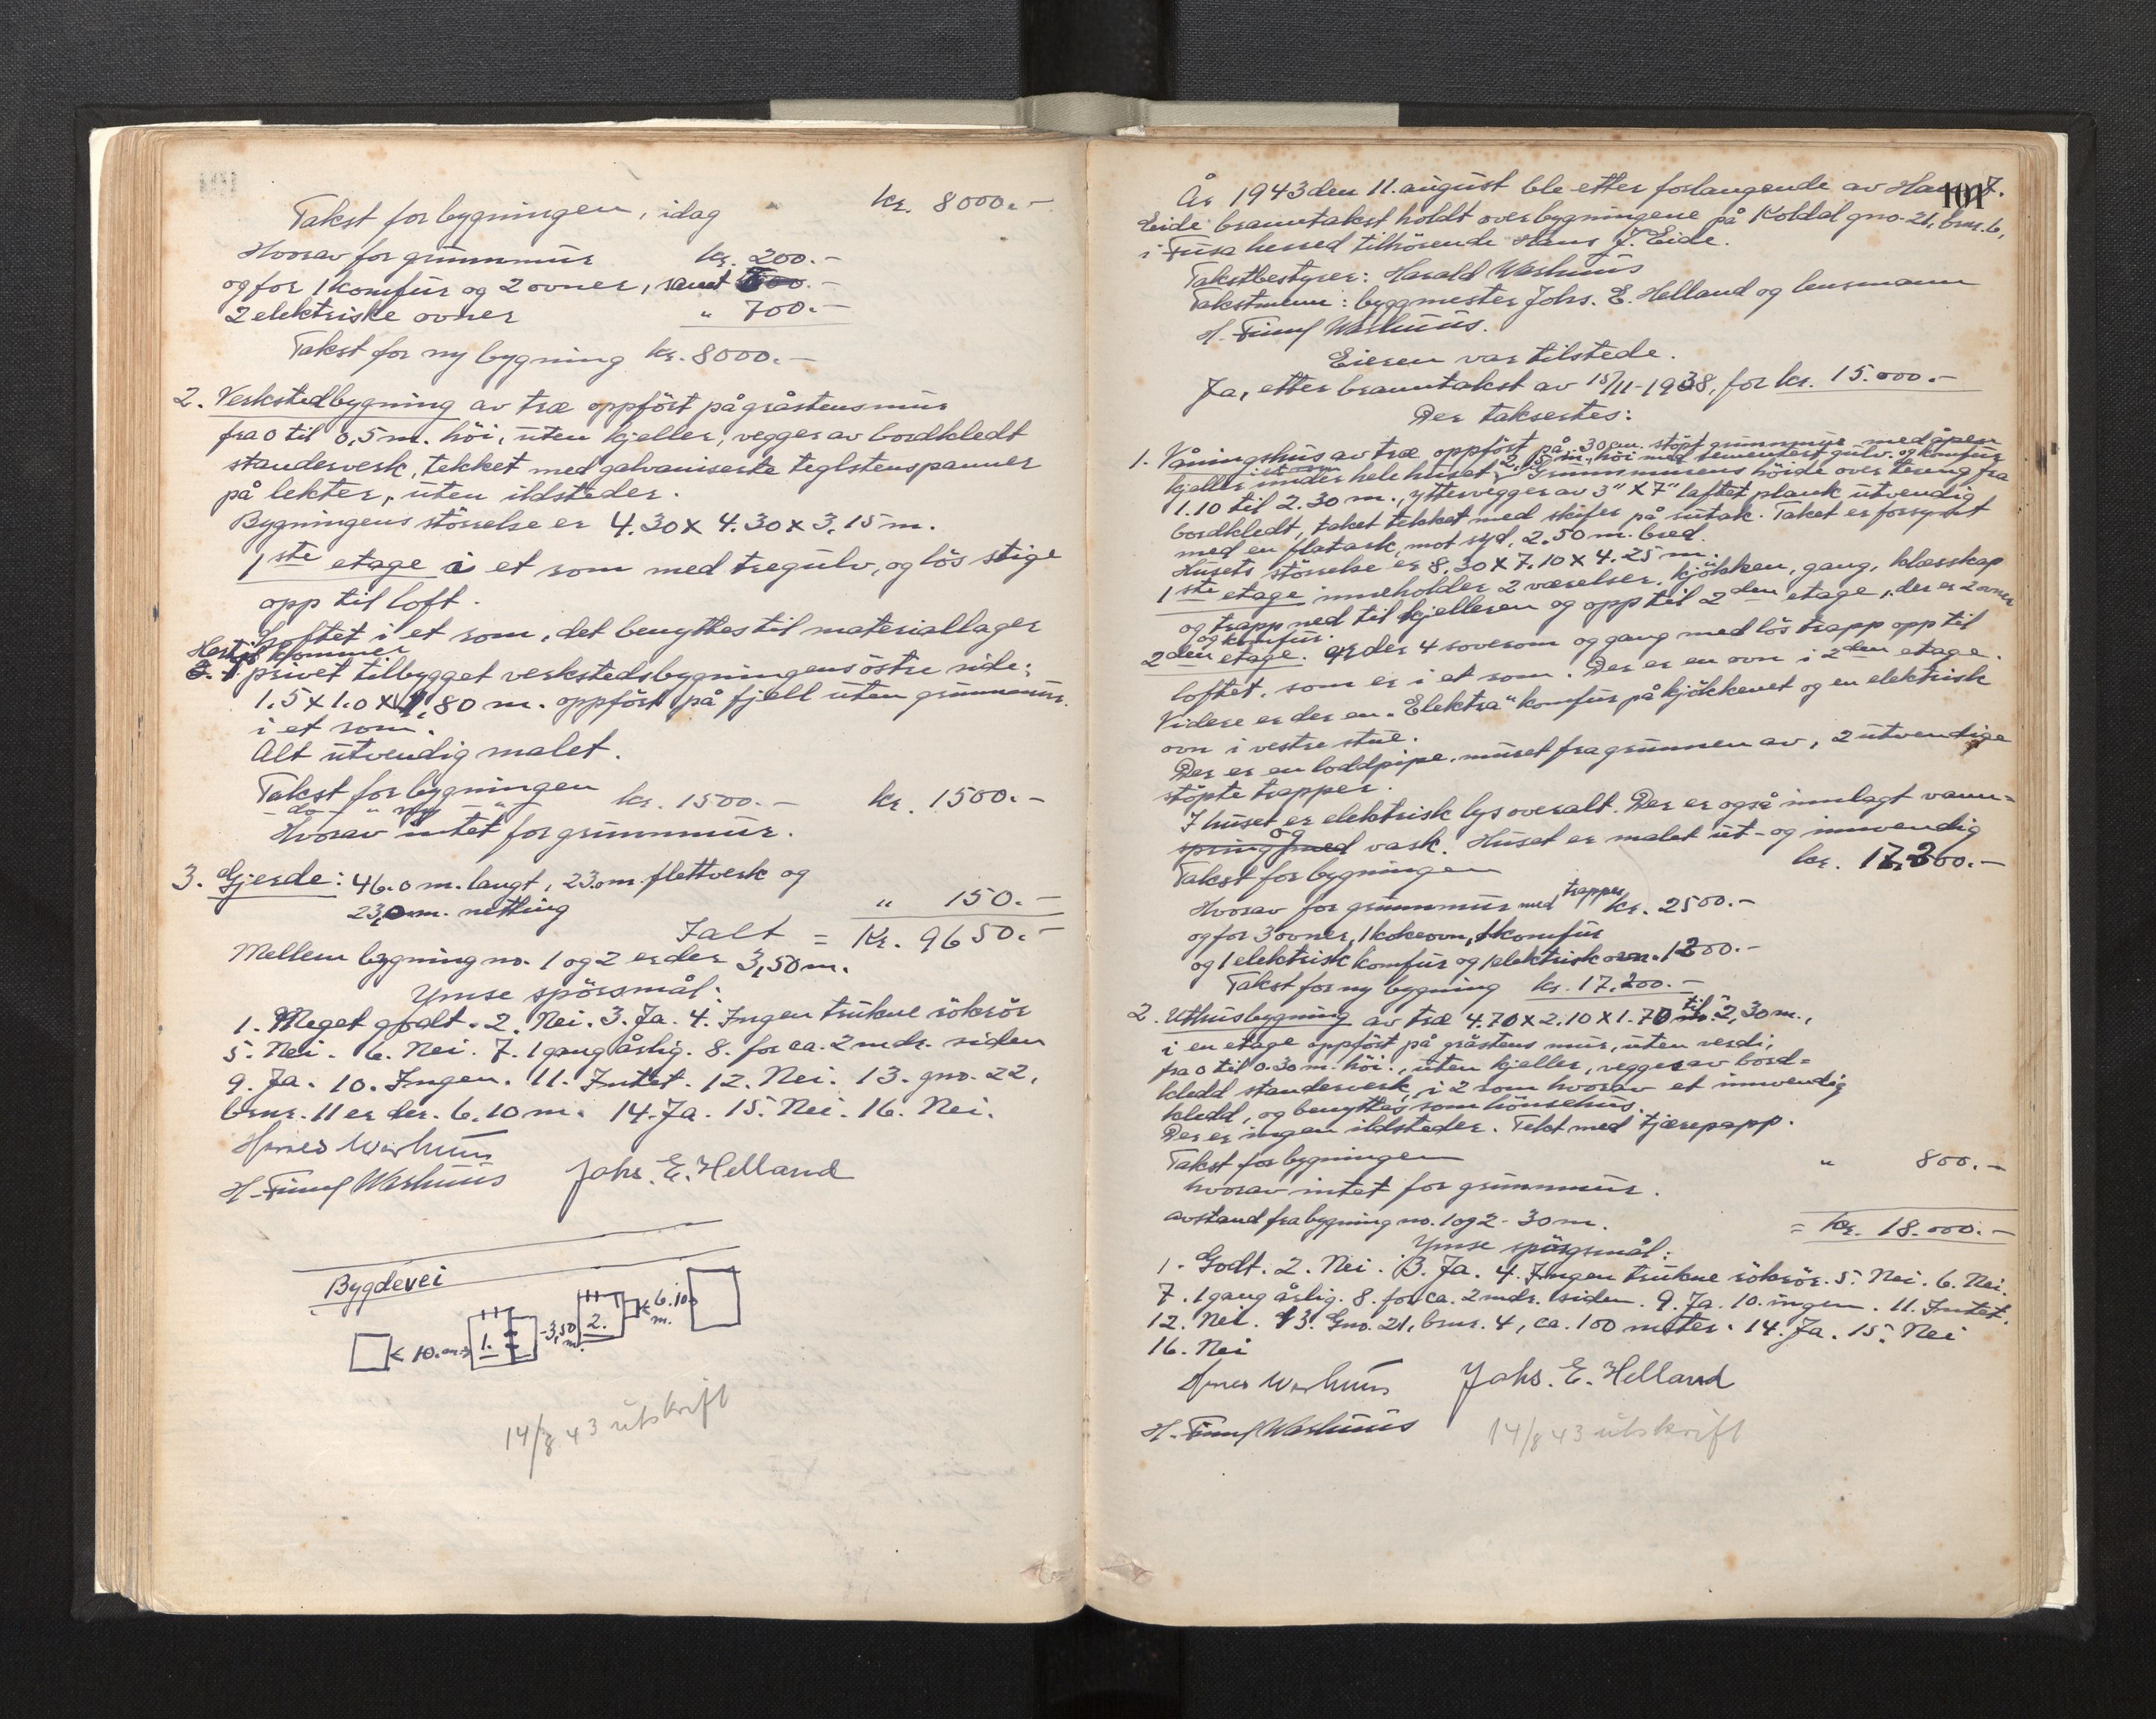 Takst for bygningen, idag kr. 8000.-
Hvorav for grunnmur kr. 200.-
og for 1 komfur og 2 ovner, samt
2 elektriske ovner " 700.-
Takst for ny bygning kr. 8000.-
2. Verkstedbygning av træ oppført på gråstensmur
fra 0 til 0,5 m. höi, uten kjeller, vegger av bordkledt
standerverk, tekket med galvaniserte teglstenspanner
på lekter, uten ildsteder.
Bygningens störrelse er 4.30 x 4.30 x 3.15 m.
1ste etage i et rom med tregulv, og lös stige
opp til loft.
Loftet i et rom, det benyttes til materiallager
Hertil kommer
1 privet tilbygget verkstedsbygningens östre side:
1.5 x 1.0 x 1,80 m. oppfört på fjell uten grunnmur.
i et rom.
Alt utvendig malet.
Takst for bygningen kr. 1500.-
-do- " ny -"- kr. 1500.-
Hvorav intet for grunnmur.
3. Gjerde: 46.0 m. langt, 23.0 m. flettverk og
23,0 m. netting " 150.-
Ialt = Kr. 9650.-
Mellem bygning no. 1 og 2 er der 3,50 m.
Ymse spörsmål:
1. Meget godt. 2. Nei. 3. Ja. 4. Ingen trukne rökrör
5. Nei. 6. Nei. 7. 1 gang årlig. 8. for ca. 2 mdr. siden
9. Ja. 10. Ingen. 11. Intet. 12. Nei. 13. gno. 22,
brnr. 11 er der. 6.10 m. 14. Ja. 15. Nei. 16. Nei.
H. Finn Warhuus Johs. E. Helland
Bygdevei
10.m 1. 3,50 m. 2. 6.10 m.
14/8 43 utskrift
101
År 1943 den 11. august ble etter forlangende av Hans J.
Eide branntakst holdt over bygningene på Koldal gno. 21, brnr. 6,
i Fusa herred tilhörende Hans J. Eide.
Takstbestyrer: Harald Warhuus
Takstmenn: byggmester Johs. E. Helland og lensmann
H. Finn Warhuus.
Eieren var tilstede.
Ja, etter branntakst av 18/11-1938, for kr. 15.000.-
Der taksertes:
1. Våningshus av træ oppfört på 30 cm. stöpt grunnmur med åpen
kjeller i et rom under hele huset 2,15 m. höi med sementert gulv. og komfur
Grunnmurens höide over terreng fra
1.10 til 2.30 m., yttervegger av 3" x 7" laftet plank utvendig
bordkledt, taket tekket med skifer på sutak. Taket er forsynt
med en flatark, mot syd, 2.50 m. bred.
Husets störrelse er 8.30 x 7.10 x 4.25 m.
1ste etage inneholder 2 værelser, kjökken, gang, klæsskap
og trapp ned til kjelleren og opp til 2den etage, der er 2 ovner
og komfur.
2den etage. er der 4 soverom og gang med lös trapp opp til
loftet, som er i et rom. Der er en ovn i 2den etage.
Videre er der en "Elektra" komfur på kjökkenet og en elektrisk
ovn i vestre stue.
Der er en loddpipe, muret fra grunnen av, 2 utvendige
stöpte trapper.
I huset er elektrisk lys overalt. Der er også innlagt vann=
spring og vask. Huset er malet ut- og innvendig
Takst for bygningen kr. 17.200.-
Hvorav for grunnmur med trapper kr. 2500.-
og for 3 ovner, 1 kokeovn, 1 komfur
og 1 elektrisk komfur og 1 elektrisk ovn. 1200.-
Takst for ny bygning kr. 17.200.-
2. Uthusbygning av træ 4.70 x 2.10 x 1.70 til 2,30 m.,
i en etage oppfört på gråstens mur, uten verdi,
fra 0 til 0.30 m. höi., uten kjeller, vegger av bord=
kledd standerverk, i 2 rom hvorav et innvendig
kledd, og benyttes som hönsehus.
Der er ingen ildsteder. Tekt med tjærepapp.
Takst for bygningen " 800.-
hvorav intet for grunnmur.
avstand fra bygning no. 1 og 2 - 30 m. = Kr. 18.000.-
Ymse spörgsmål:
1. Godt. 2. Nei. 3. Ja. 4. Ingen trukne rökrör. 5. Nei. 6. Nei.
7. 1 gang årlig. 8. for ca. 2 mdr. siden. 9. Ja. 10. ingen. 11. Intet.
12. Nei. 13. Gno. 21, brnr. 4, ca. 100 meter. 14. Ja. 15. Nei
16. Nei
Johs. E. Helland
H. Finn Warhuus 14/8 43 utskrift